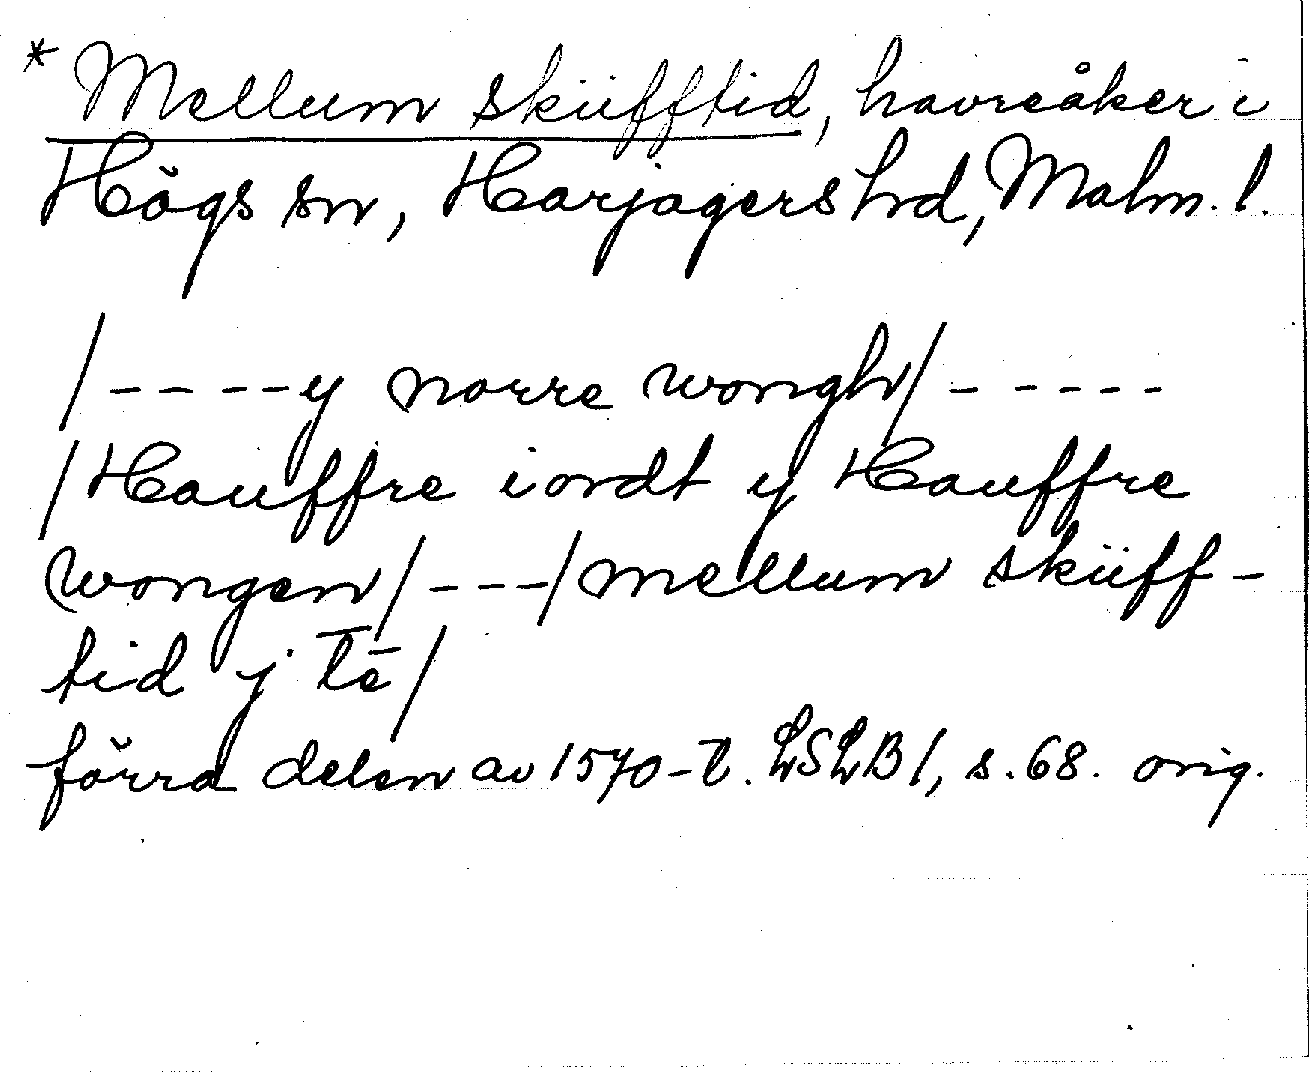 * Mellum sküfftid, havreåker i
Högs sn, Harjagers hd, Malm. l.
/----y norre wongh/-----
/Hauffre iordt y Hauffre
wongen/---/mellum sküff-
tid j
förra delen av 1570-t. LSLB 1, s. 68. orig.